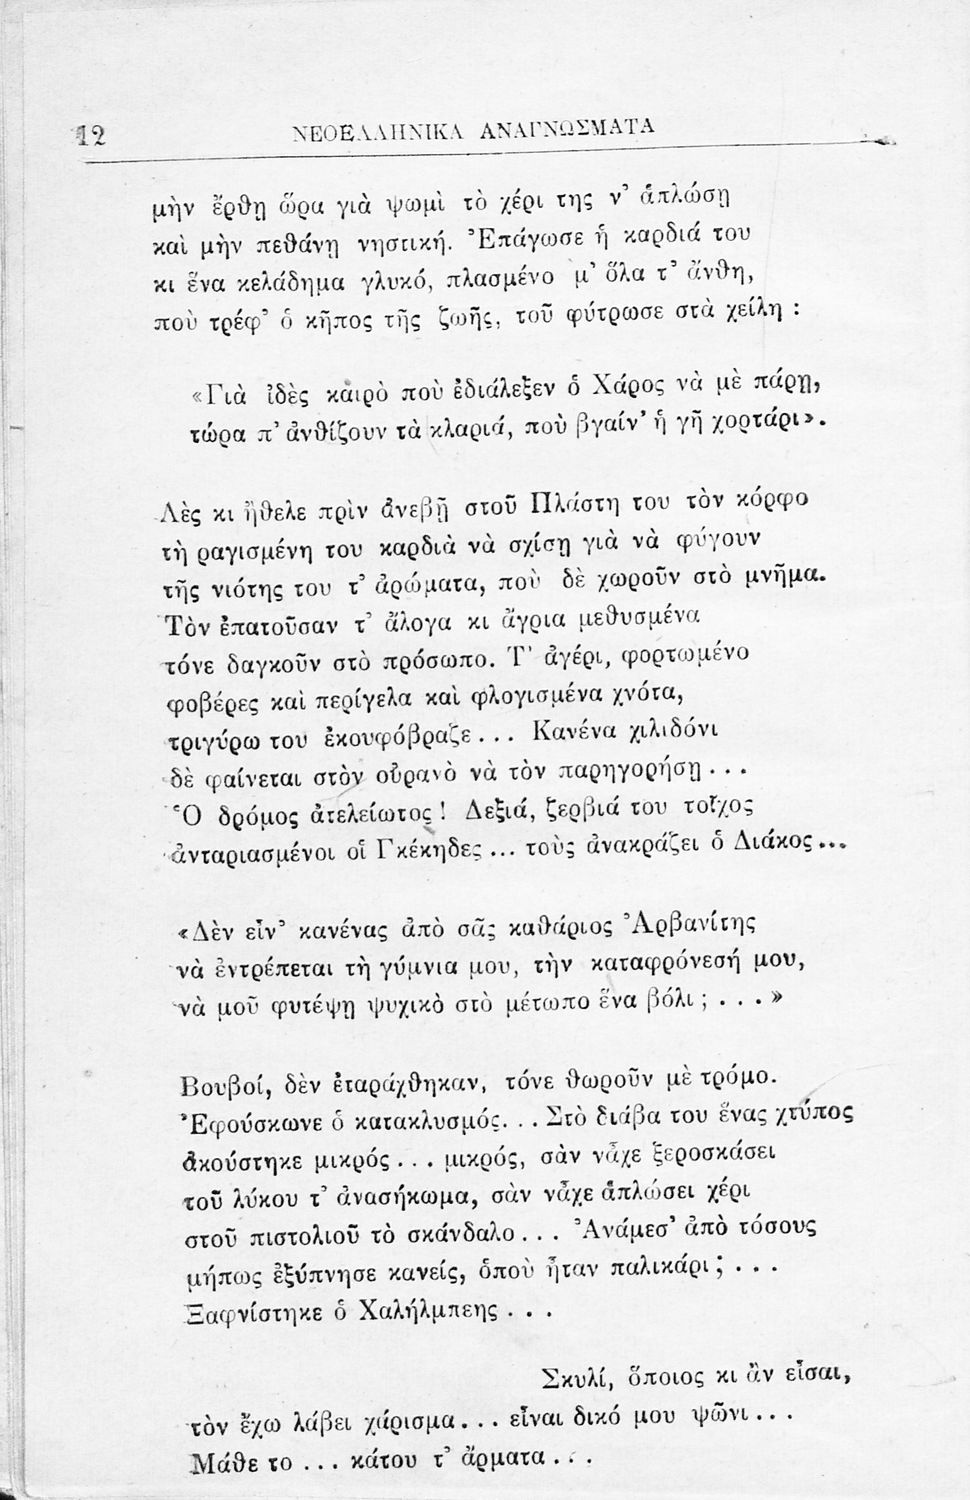 12 ΝΕΟΕΛΛΗΝΙΚΑ ΑΝΑΓΝΩΣΜΑΤΑ
μὴν ἔρθῃ ὥρα γιὰ ψωμὶ τὸ χέρι της ν’ ἁπλώσῃ
καὶ μὴν πεθάνῃ νηστική. Ἐπάγωσε ἡ καρδιά του
κι ἕνα κελάδημα γλυκό, πλασμένο μ’ ὅλα τ’ ἄνθη,
ποὺ τρέφ’ ὁ κῆπος τῆς ζωῆς, τοῦ φύτρωσε στὰ χείλη :
«Γιὰ ἰδὲς καιρὸ ποὺ ἐδιάλεξεν ὁ Χάρος νὰ μὲ πάρῃ,
τώρα π’ ἀνθίζουν τὰ κλαριά, ποὺ βγαίν’ ἡ γῆ χορτάρι».
Λὲς κι ἤθελε πρὶν ἀνεβῇ στοῦ Πλάστη του τὸν κόρφο
τὴ ραγισμένη του καρδιὰ νὰ σχίσῃ γιὰ νὰ φύγουν
τῆς νιότης του τ’ ἀρώματα, ποὺ δὲ χωροῦν στὸ μνῆμα.
Τὸν ἐπατοῦσαν τ’ ἄλογα κι ἄγρια μεθυσμένα
τόνε δαγκοῦν στὸ πρόσωπο. Τ’ ἀγέρι, φορτωμένο
φοβέρες καὶ περίγελα καὶ φλογισμένα χνότα,
τριγύρω του ἐκουφόβραζε... Κανένα χιλιδόνι
δὲ φαίνεται στὸν οὐρανὸ νὰ τὸν παρηγορήσῃ...
Ὁ δρόμος ἀτελείωτος! Δεξιά, ζερβιά του τοῖχος
ἀνταριασμένοι οἱ Γκέκηδες... τοὺς ἀνακράζει ὁ Διάκος...
«Δὲν εἶν’ κανένας ἀπὸ σᾶς καθάριος Ἀρβανίτης
νὰ ἐντρέπεται τὴ γύμνια μου, τὴν καταφρόνεσή μου,
νὰ μοῦ φυτέψῃ ψυχικὸ στὸ μέτωπο ἕνα βόλι ; ...»
Βουβοί, δὲν ἐταράχθηκαν, τόνε θωροῦν μὲ τρόμο.
Ἐφούσκωνε ὁ κατακλυσμός... Στὸ διάβα του ἕνας χτύπος
ἀκούστηκε μικρός... μικρός, σὰν νἆχε ξεροσκάσει
τοῦ λύκου τ’ ἀνασήκωμα, σὰν νἆχε ἁπλώσει χέρι
στοῦ πιστολιοῦ τὸ σκάνδαλο... Ἀνάμεσ’ ἀπὸ τόσους
μήπως ἐξύπνησε κανείς, ὁποὺ ἦταν παλικάρι; ...
Ξαφνίστηκε ὁ Χαλήλμπεης ...
Σκυλί, ὅποιος κι ἂν εἶσαι,
τὸν ἔχω λάβει χάρισμα... εἶναι δικό μου ψῶνι...
Μάθε το ... κάτου τ’ ἄρματα...